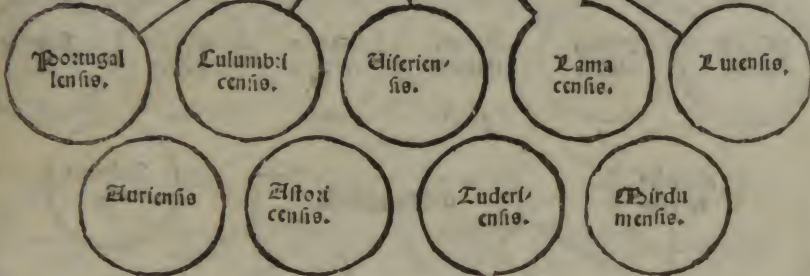 Portugal
lensis.
Culumbri
censis.
Viserien-
sis.
Lama
censis.
Lutensis.
Auriensis
Astori
censis.
Tuderi-
ensis.
Mirdu
mensis.